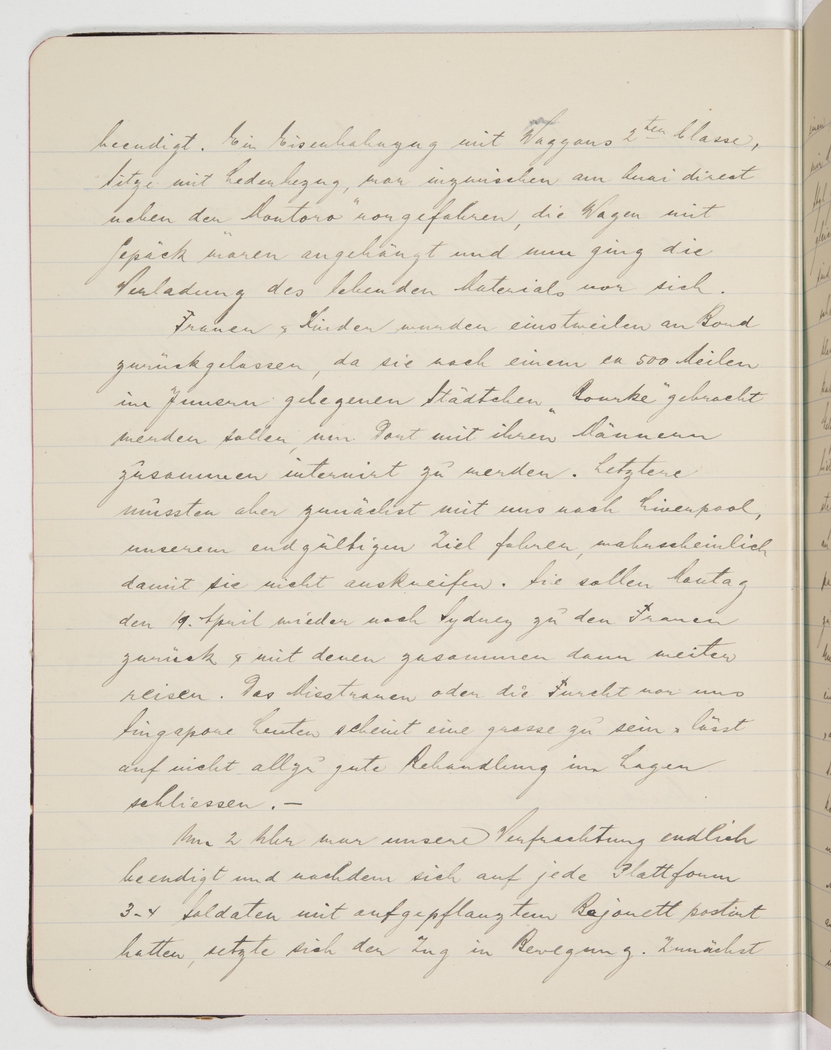 beendigt. Ein Eisenbahnzug mit Waggons 2ten Classe,
Sitze mit Lederbezug, war inzwischen am Quai direct
neben der „Montoro" vorgefahren, die Wagen mit
Gepäck waren angehängt und nun ging die
Verladung des lebenden Materials vor sich.
Frauen & Kinder wurden einstweilen an Bord
zurückgelassen, da sie nach einem ca 500 Meilen
im Innern gelegenen Städtchen „Bourke" gebracht
werden sollen, um Dort mit ihren Männern
zusammen internirt zu werden. Letztere
müssten aber zunächst mit uns nach Liverpool,
unserem endgültigen Ziel fahren, wahrscheinlich
damit sie nicht auskneifen. Sie sollen Montag
den 19. April wieder nach Sydney zu den Frauen
zurück & mit denen zusammen dann weiter
reisen. Das Misstrauen oder die Furcht vor uns
Singapore Leuten scheint eine grosse zu sein & lässt
auf nicht allzu gute Behandlung im Lager
schliessen. —
Um 2 Uhr war unsere Verfrachtung endlich
beendigt und nachdem sich auf jede Plattform
3-4 Soldaten mit aufgepflanztem Bajonett postirt
hatten, setzte sich der Zug in Bewegung. Zunächst